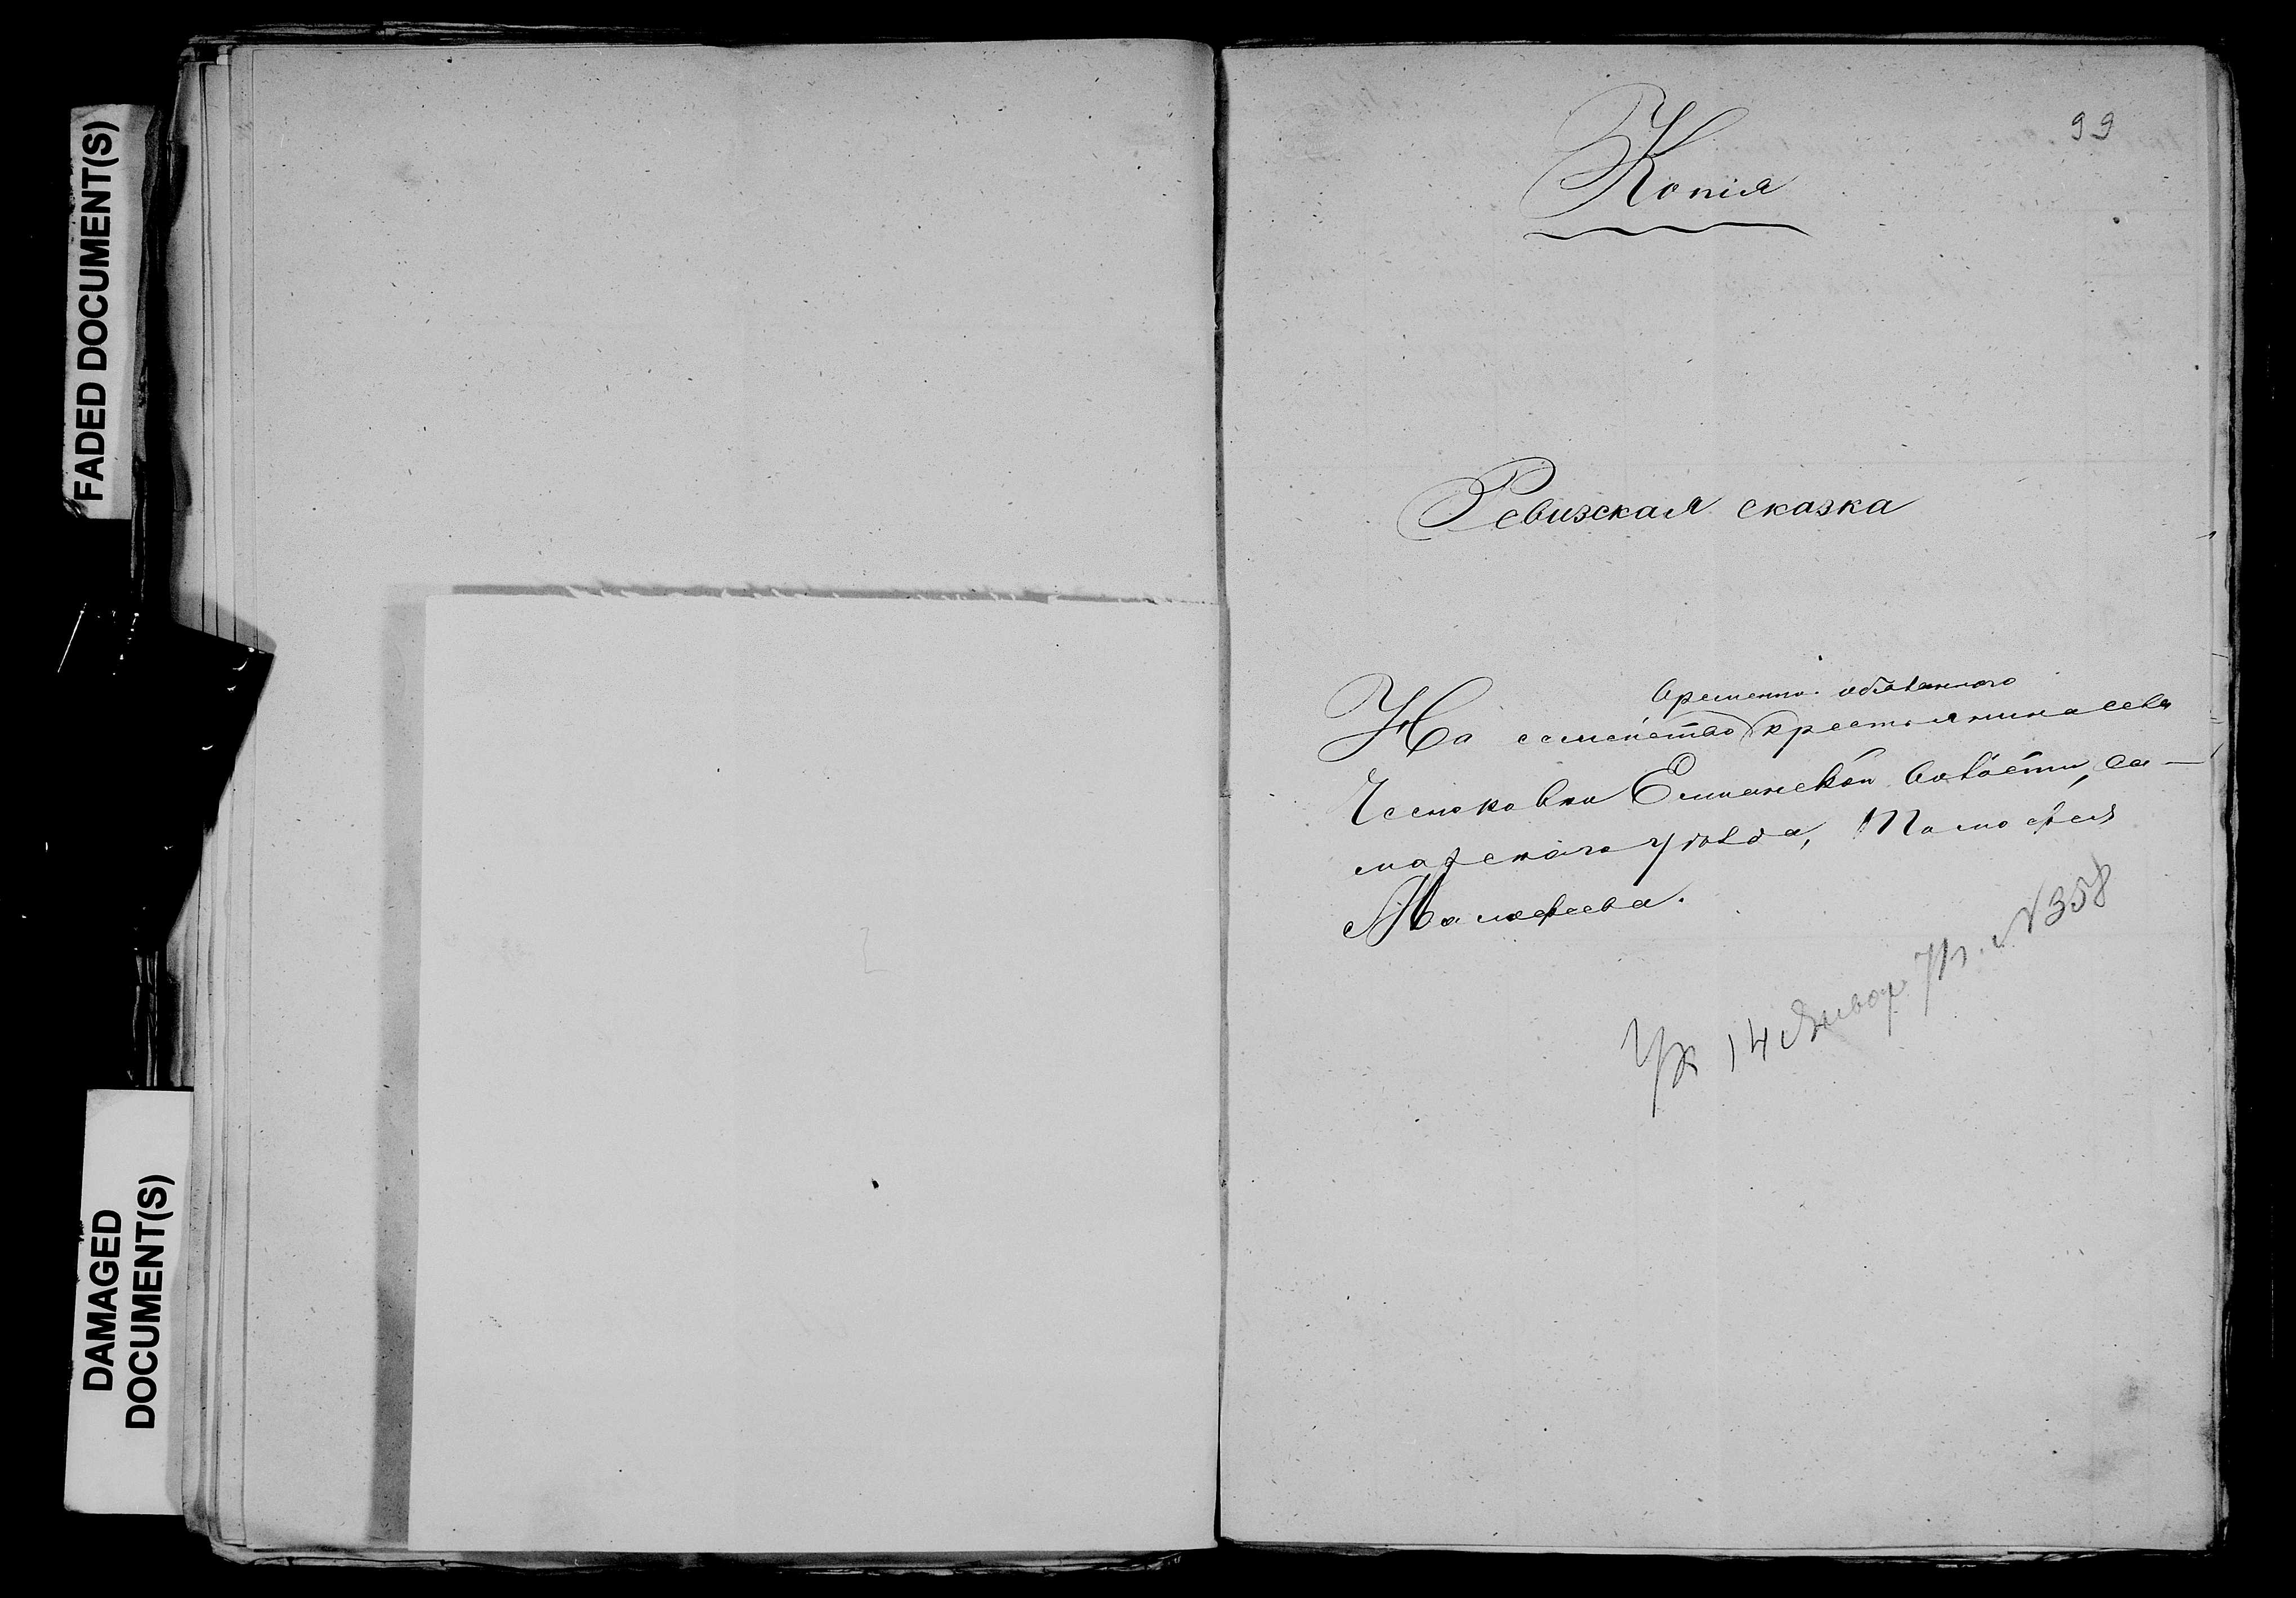 FADED DOCUMENT(S)
DAMAGED
DOCUMENT(S)
99
Копія
Ревизская сказка
временно обязаннаго
На семейство крестьянина села
Чесноковки Елшанской волости, Са-
марскаго уѣзда, Тимофея
Малофеева.
14 Январ 71 г. №358